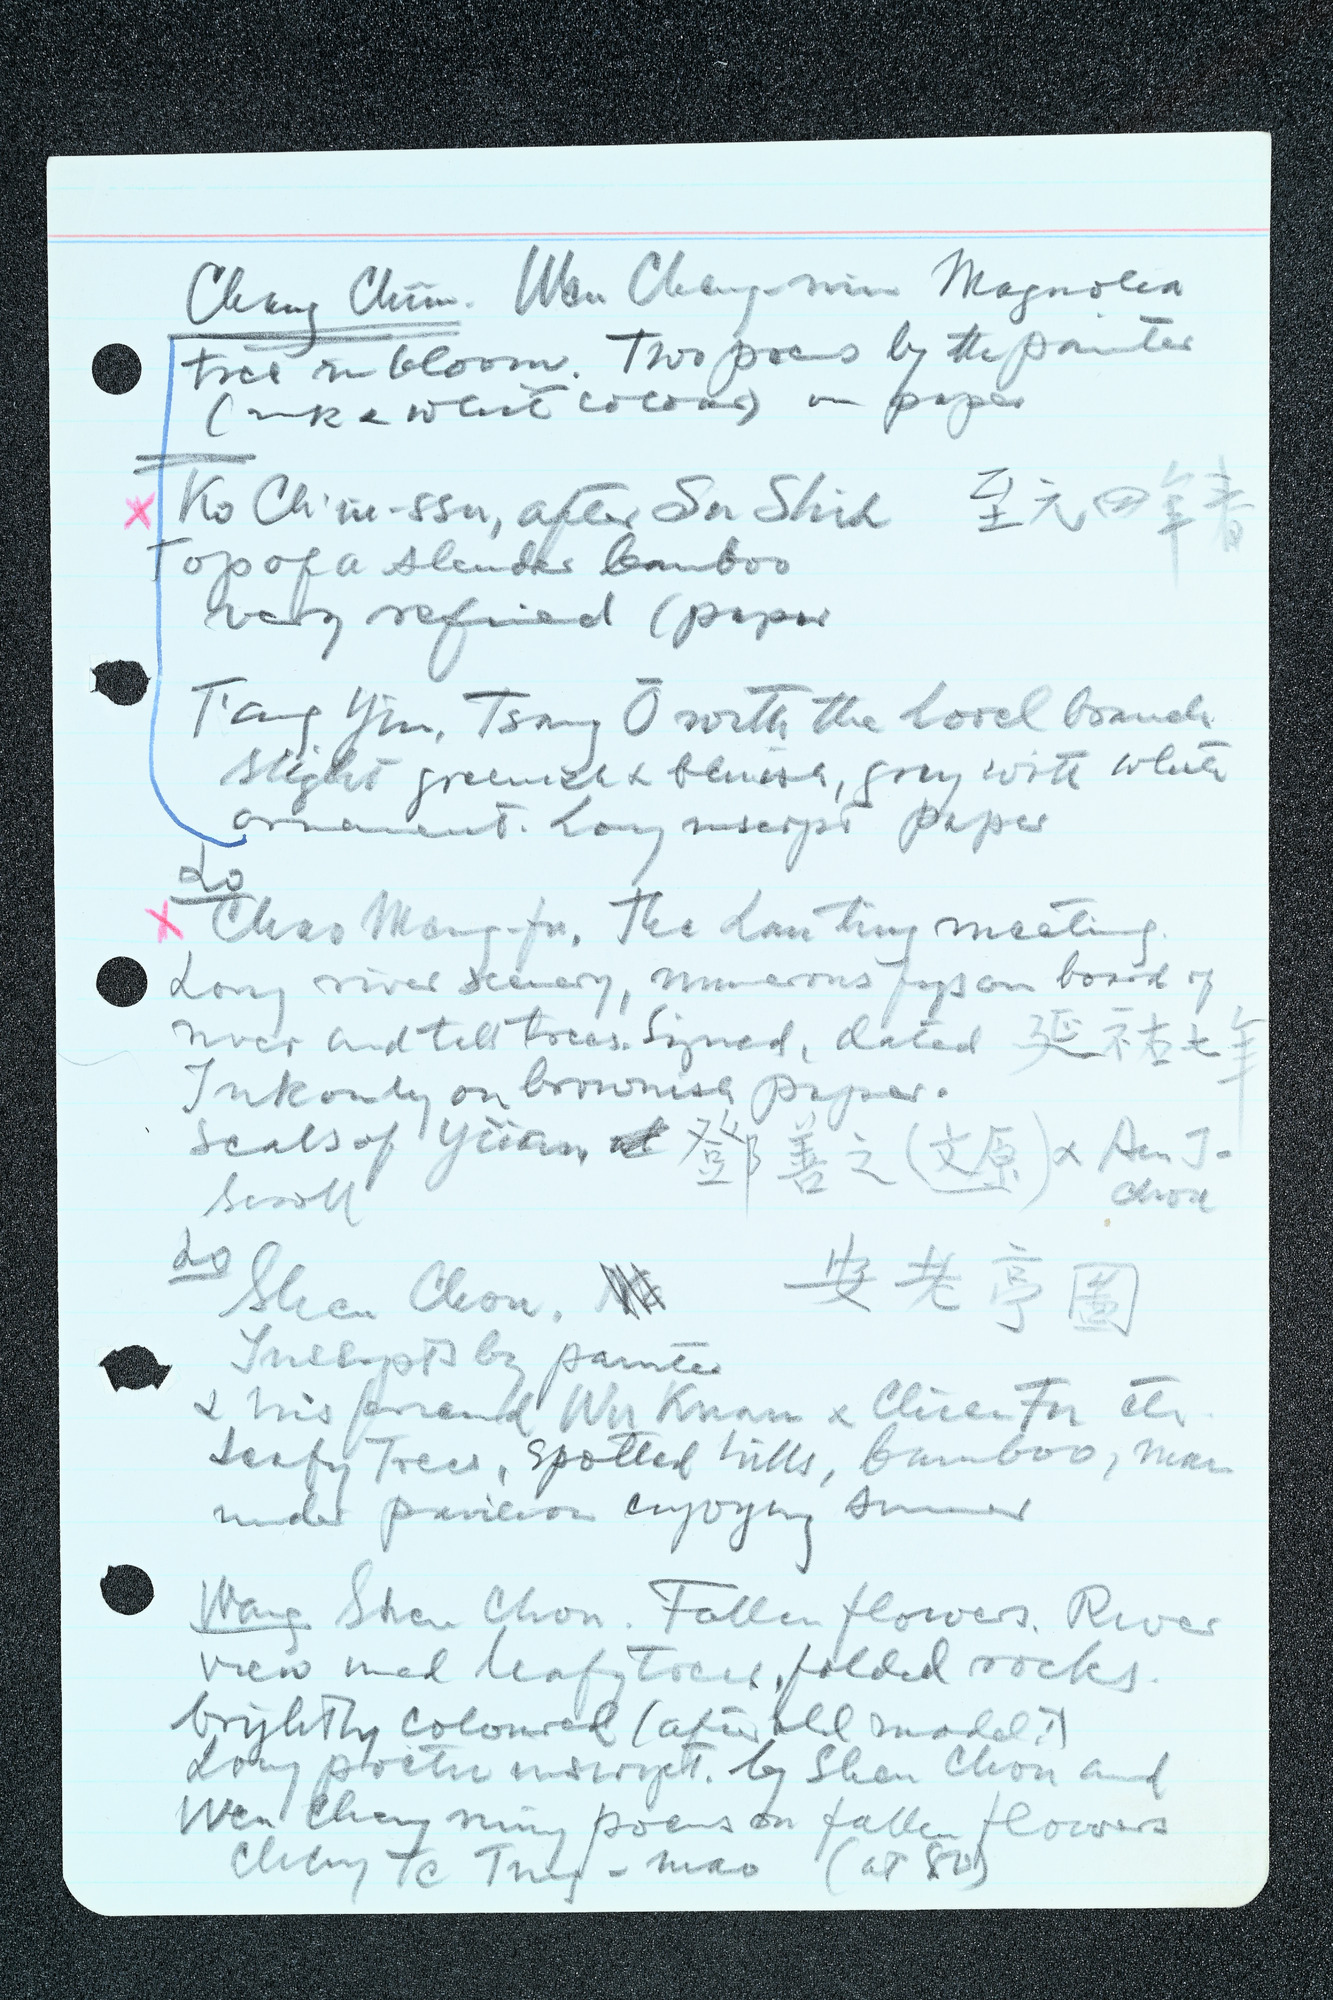 Chang Chün. Wen Cheng-ming Magnolia
tree in bloom. Two poems by the painter
(ink & white colour) on paper
Ko Chiu-ssu, after Su Shih 至元四年春
Top of a slender bamboo
very refined (paper
T'ang Yin, Tsang Ō with the laurel branch
slight greenish & bluish, grey with white
ornament. Long inscript paper
Lo
Chao Mêng-fu, The Lan ting meeting.
Long river scenery, numerous figs on board of
river and tall trees. Signed, dated 延祐七年
Ink only on brownish paper.
Seals of Yüan, 鄧善之(文原) & An I-
chou
Scroll
Lo Shen Chou. 安老亭圖
Inscripts by painter
& his friend Wu Kuan & Chien Fu etc.
Leafy trees, spotted hills, bamboo, man
under pavilion enjoying summer
Wang Shen Chou. Fallen flowers. River
view med leafy trees, folded rocks.
brightly coloured (after old model?)
Long poetic inscript. by Shen Chou and
Wen Cheng ming poems on fallen flowers
Cheng Te Ting-mao (at 80)